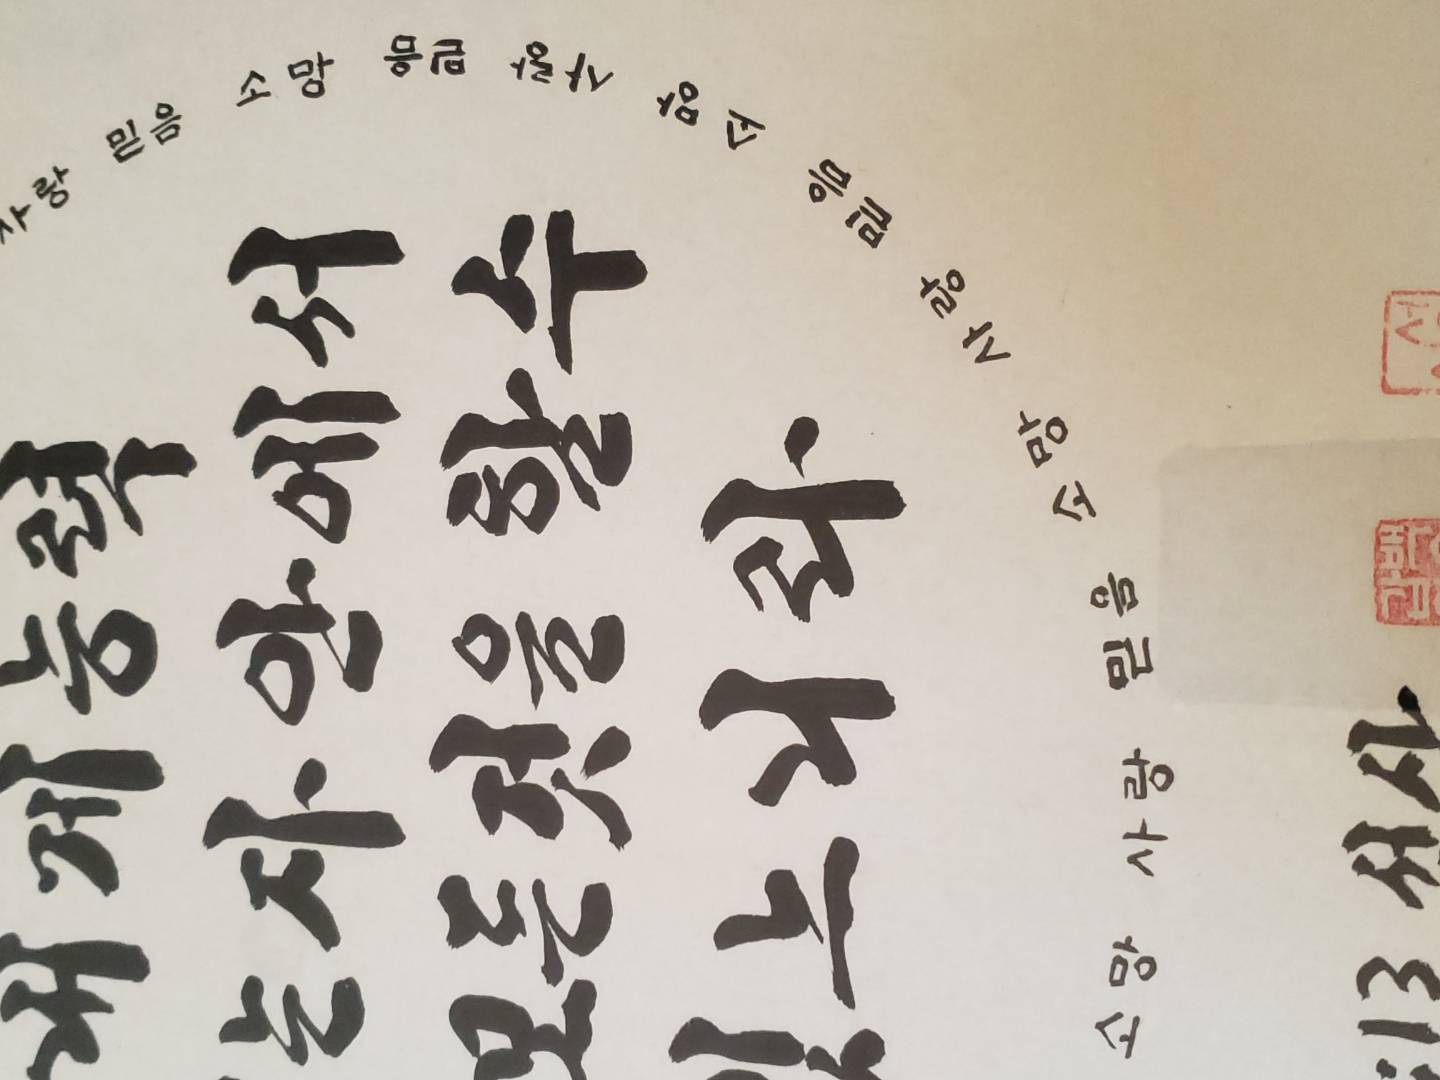 사랑 믿음 소망
소망 사랑 믿음 소망 사랑 믿음 소망 사랑 믿음
내게 능력
는 자 안에서
모든 것을 할 수
있느니라
:13 서